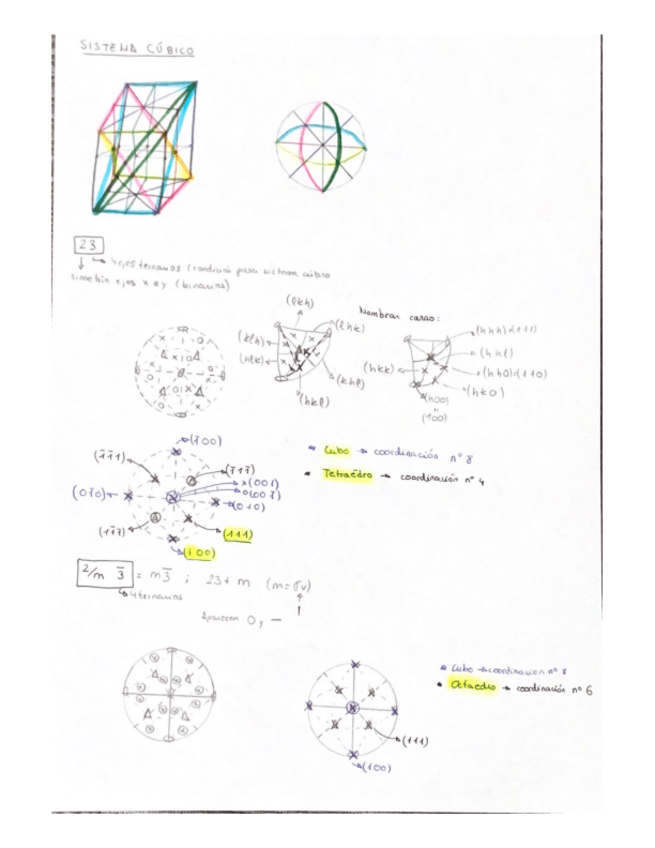 SISTEMA CÚBICO
23
↳ 4 ejes ternarios (condición para sistema cúbico
simetría ejes x e y (binarios)
Nombrar caras:
(lkh)
(lhk)
(klh)
(hlk)
(khl)
(hkl)
(hhh)≡(111)
(hhl)
(hkk)
(hh0)≡(110)
(hk0)
(h00)
(100)
(1̄00)
(1̄1̄1)
(1̄11̄)
x(001)
o(001̄)
(01̄0)
(010)
(11̄1̄)
(111)
(100)
* Cubo → coordinación nº 8
* Tetraedro → coordinación nº 4
2/m 3̄ = m3̄ ; 23 + m (m = σv)
↳ 4 ternarios
Aparecen O y —
(111)
(100)
* Cubo → coordinación nº 8
* Octaedro → coordinación nº 6